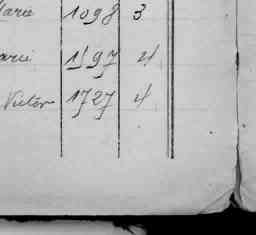 Marie 1098 3
Marie 1597 4
Victor 1727 4